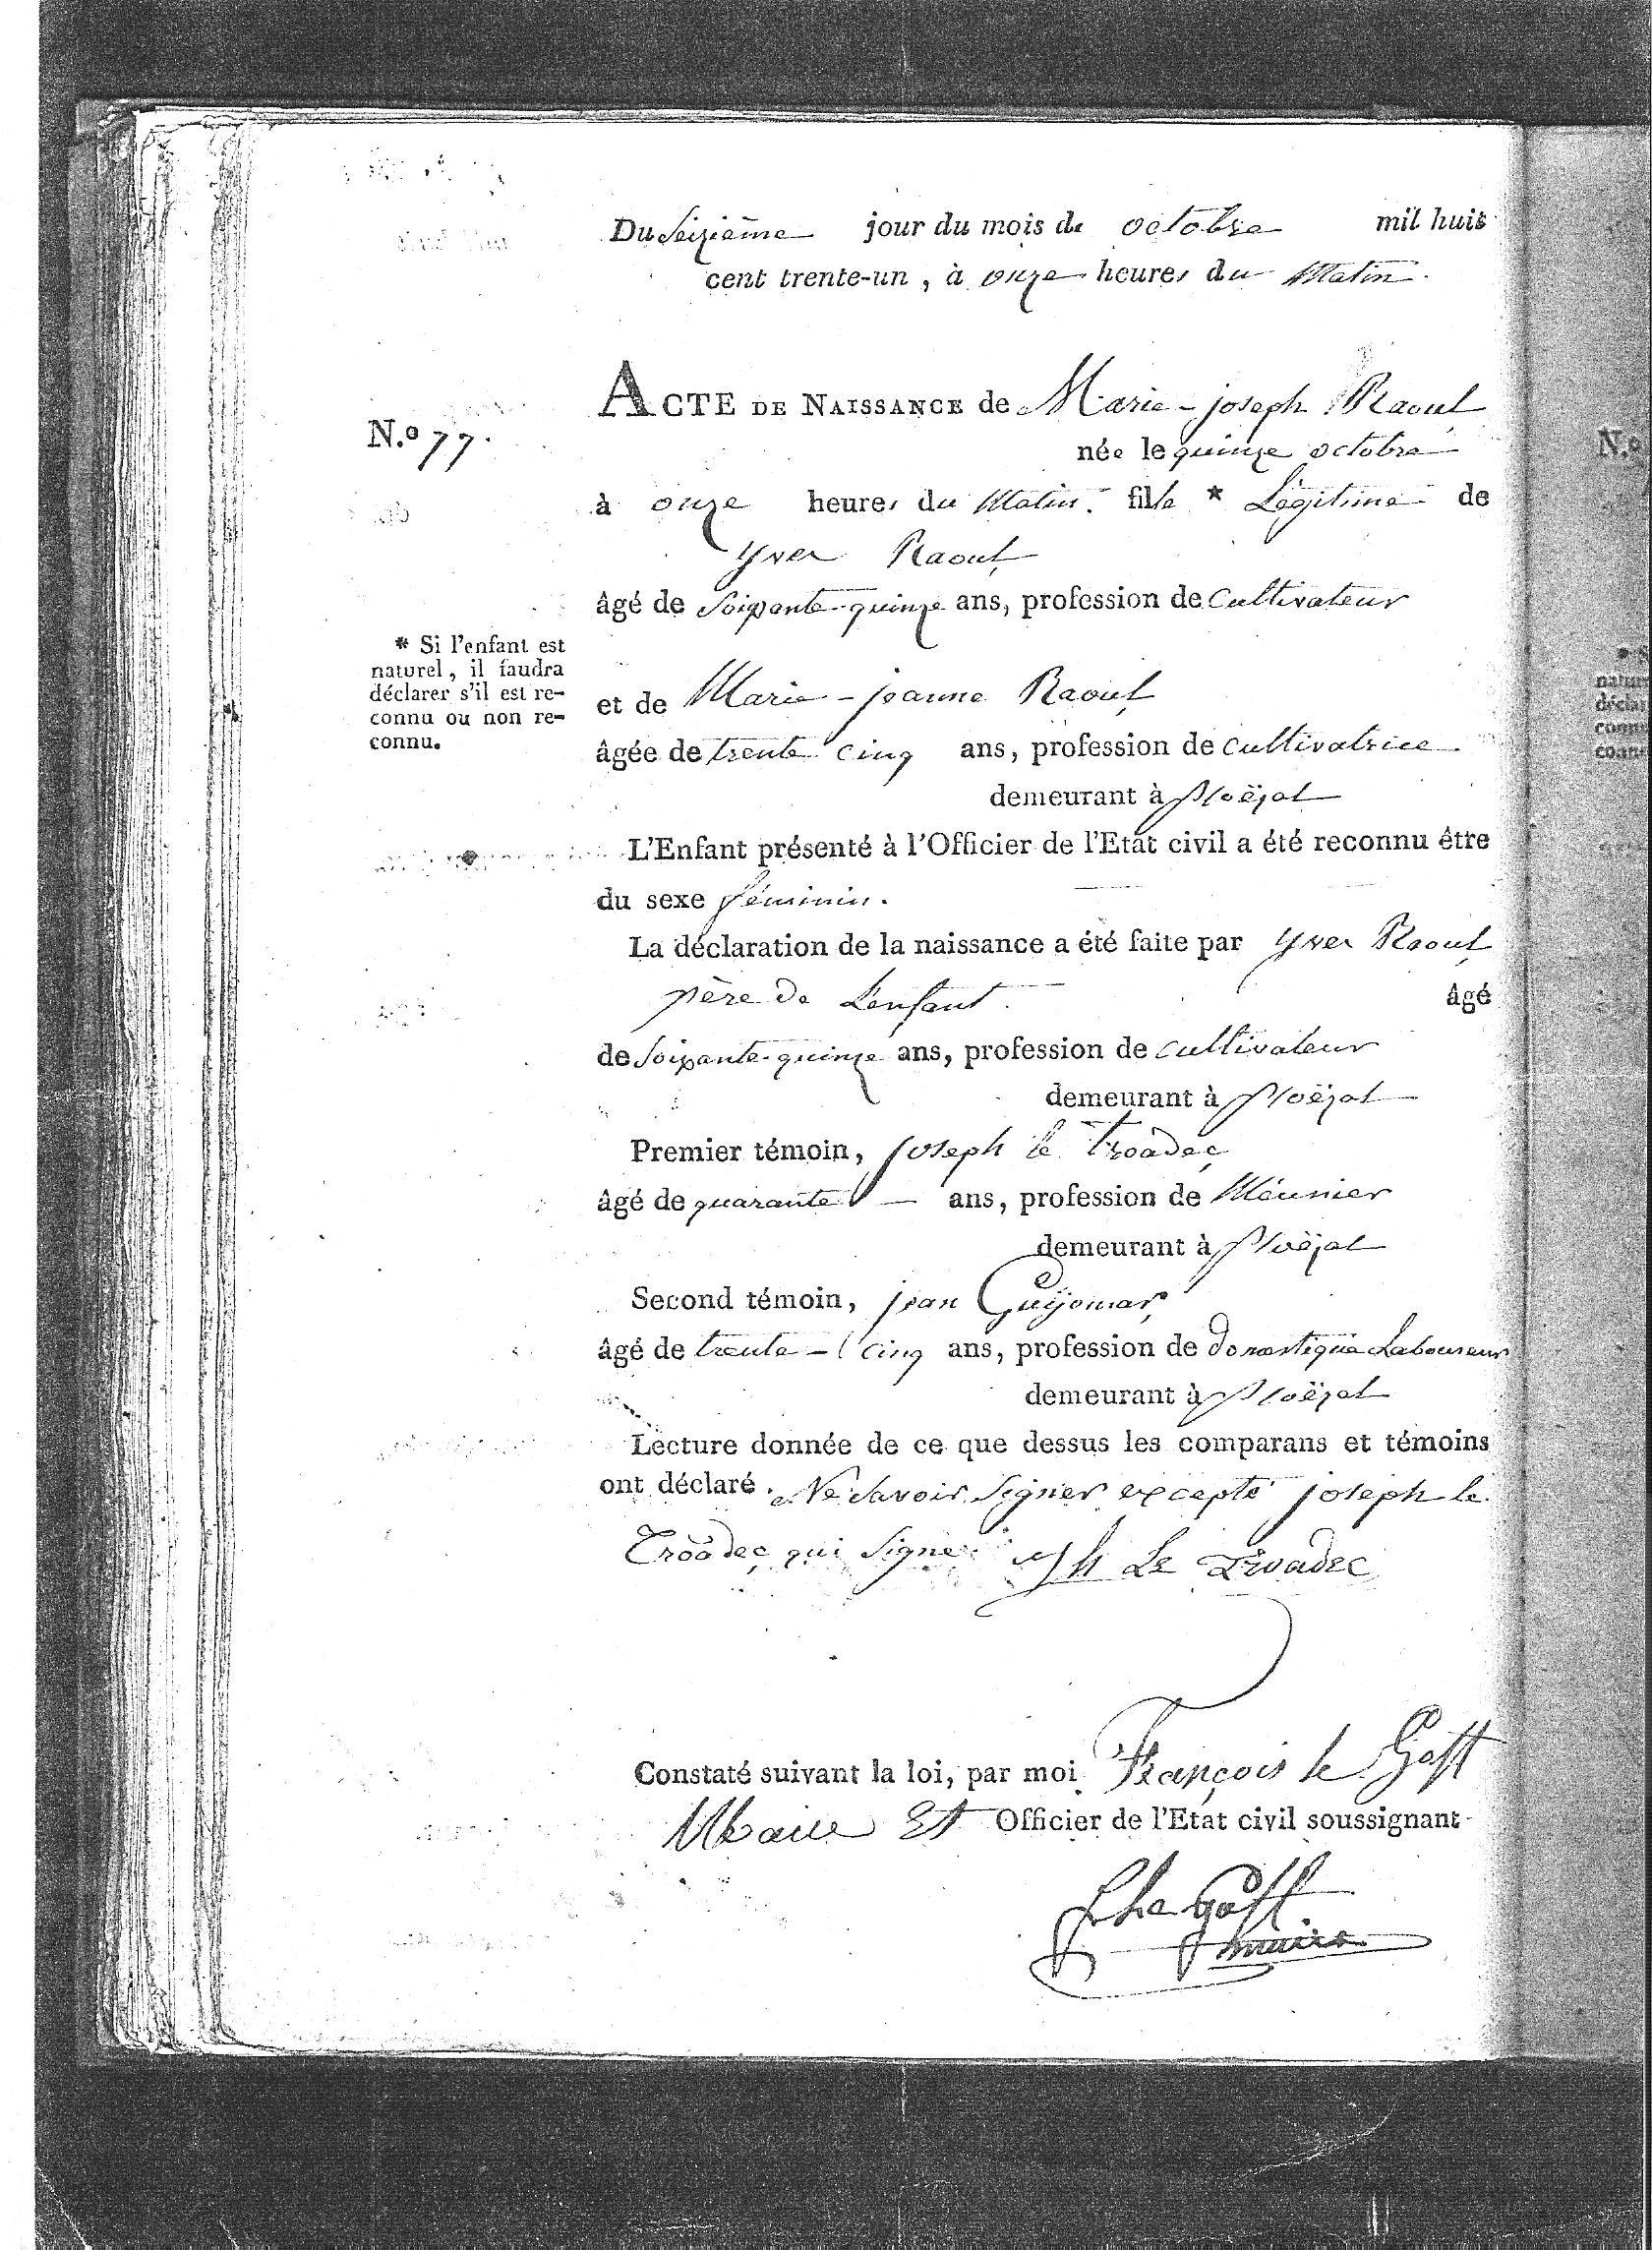 Du Seizième jour du mois de octobre mil huit
cent trente-un, à onze heures du Matin.
ACTE DE NAISSANCE de Marie-joseph Raoul
N.º 77.
née le quinze octobre
à onze heures du Matin. fille * Légitime de
Yves Raoul
âgé de Soixante-quinze ans, profession de Cultivateur
* Si l'enfant est
naturel, il faudra
déclarer s'il est re-
connu ou non re-
connu.
et de Marie-jeanne Raoul
âgée de trente cinq ans, profession de Cultivatrice
demeurant à ploëzal
L'Enfant présenté à l'Officier de l'Etat civil a été reconnu être
du sexe féminin.
La déclaration de la naissance a été faite par Yves Raoul
père de L'enfant. âgé
de Soixante-quinze ans, profession de cultivateur
demeurant à ploëzal
Premier témoin, joseph le Troadec
âgé de quarante ans, profession de Meunier
demeurant à ploëzal
Second témoin, jean Guÿomar
âgé de trente-cinq ans, profession de domestique Laboureur
demeurant à ploëzal
Lecture donnée de ce que dessus les comparans et témoins
ont déclaré Ne Savoir Signer excepté joseph le
Troadec qui Signe. Jh Le Troadec
Constaté suivant la loi, par moi François le Goff
Maire Et Officier de l'Etat civil soussignant
Le Goff
maire
N.º